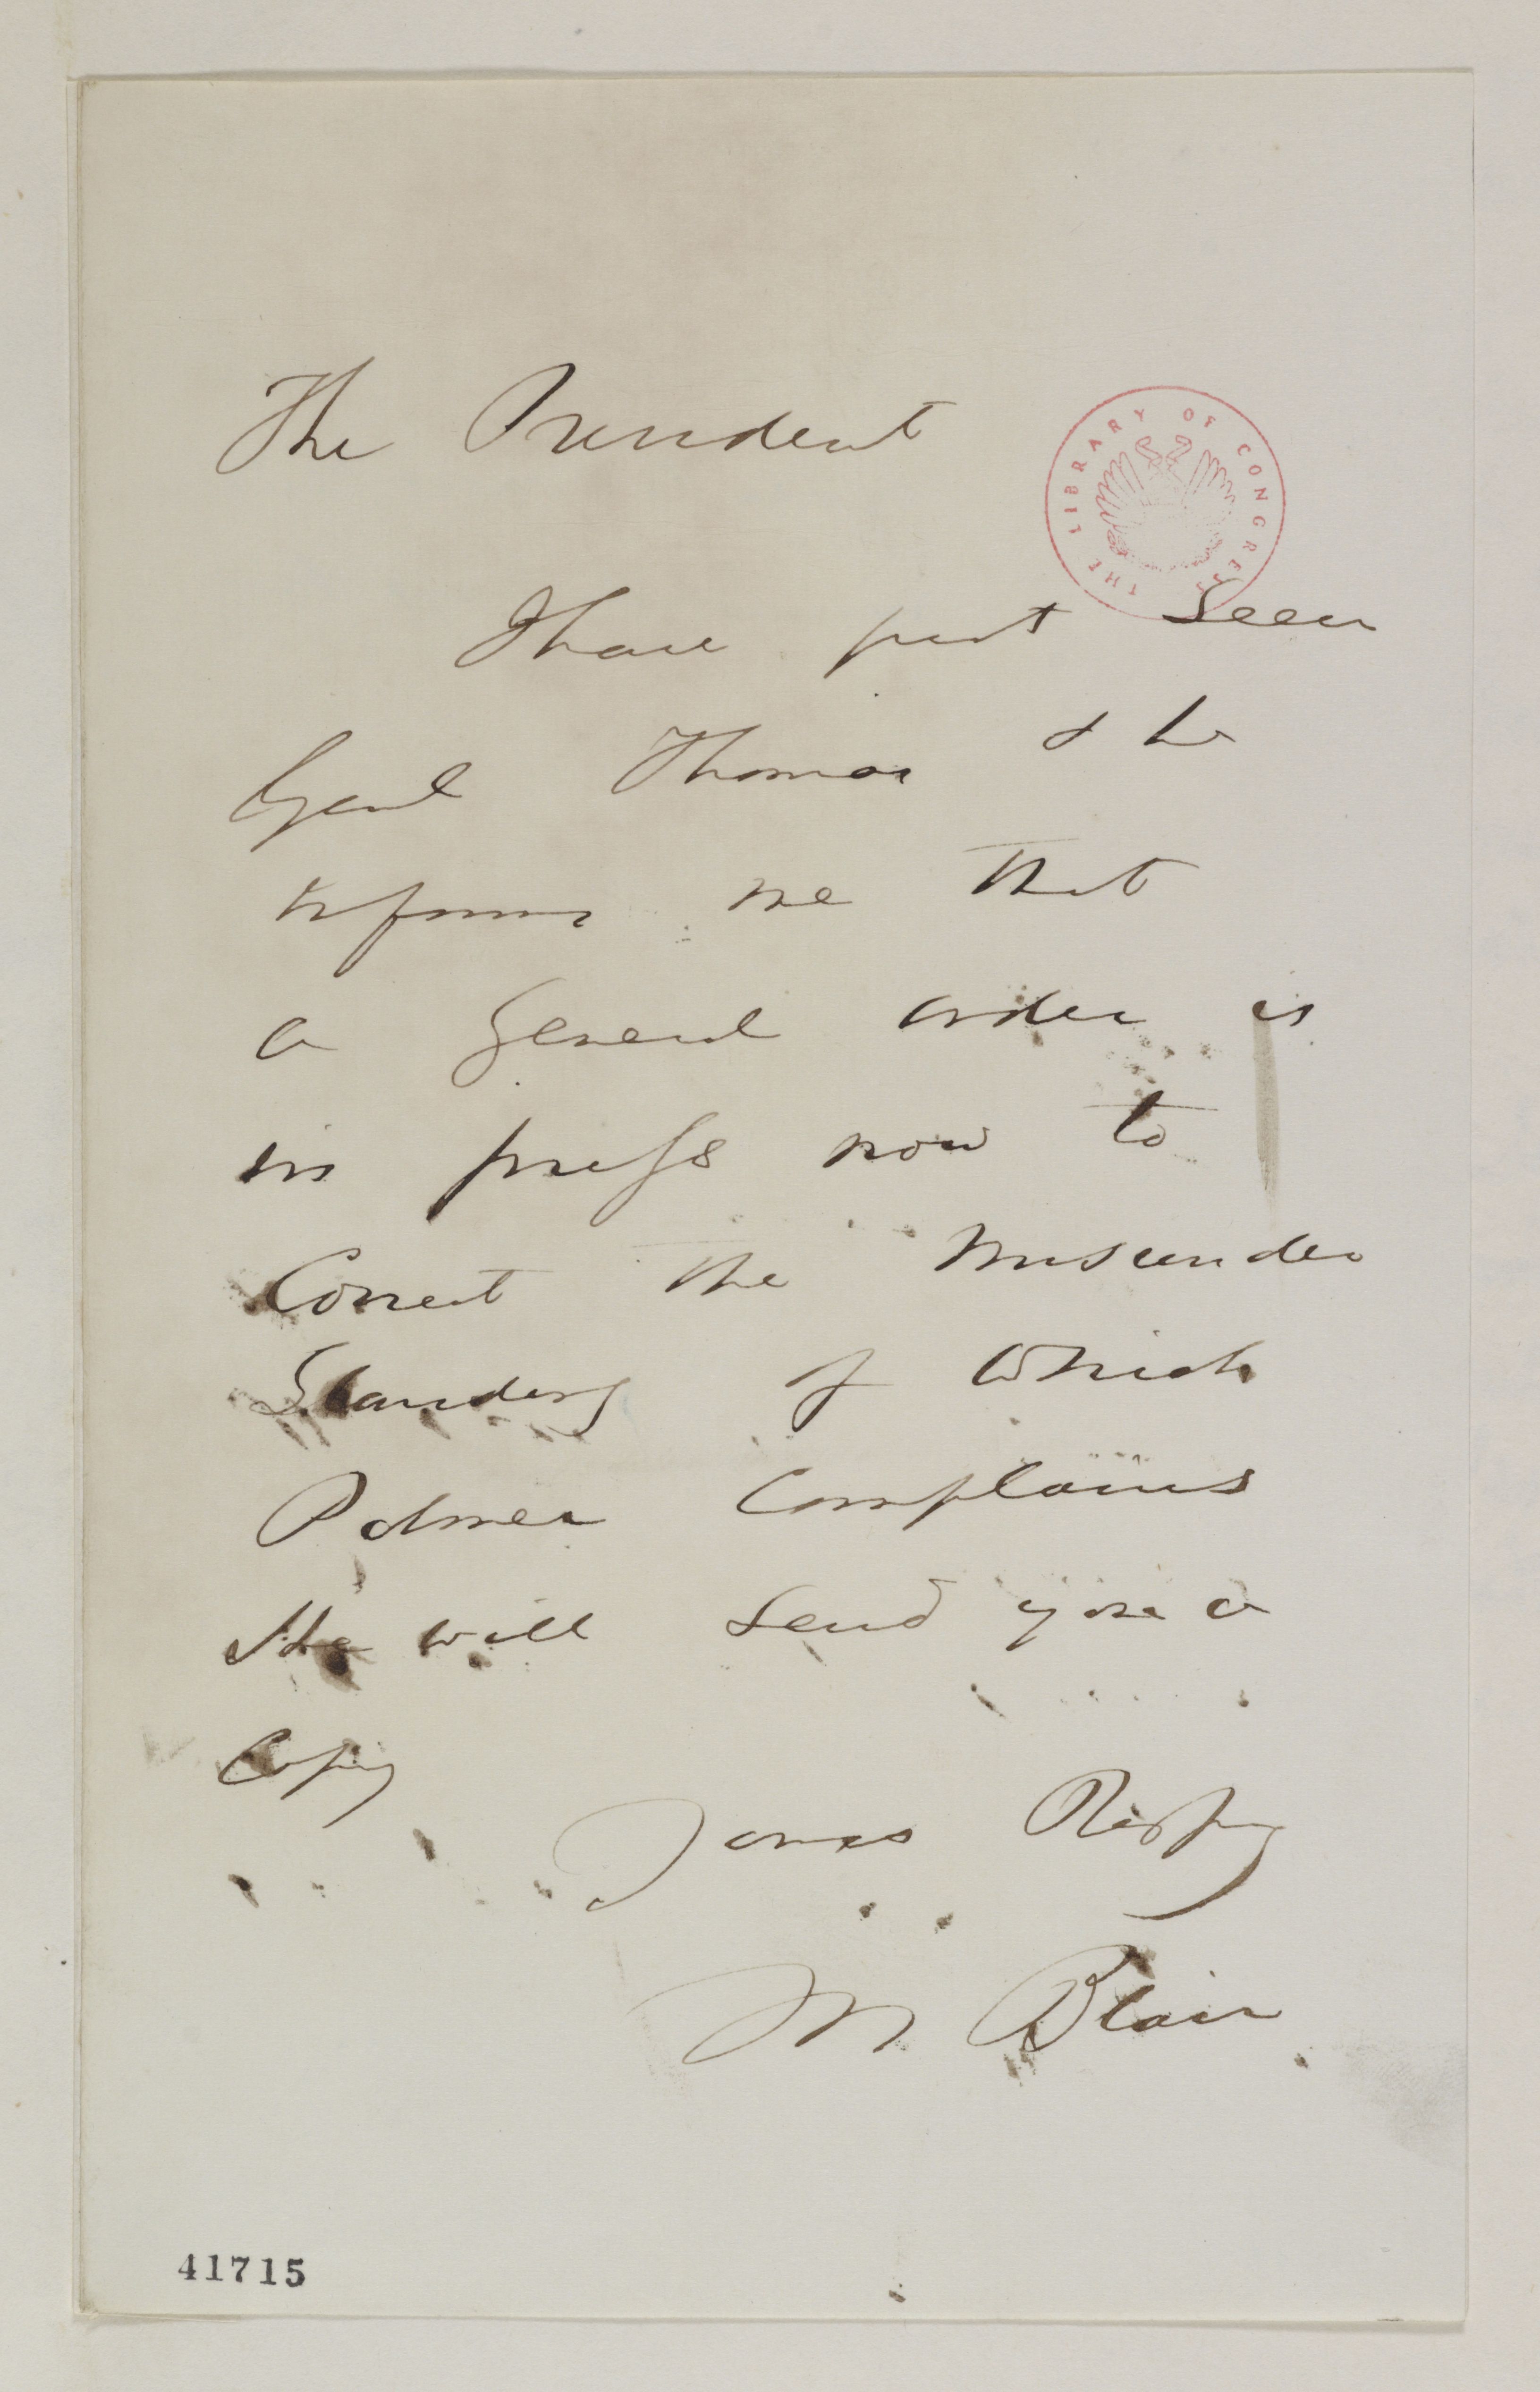 The President
THE LIBRARY OF CONGRESS
I have just seen
Genl Thomas & he
informs me that
a General order is
in press now to
Correct the misunder
standing of which
Palmer Complains
He will send you a
Copy
Yours Respy
M Blair
41715